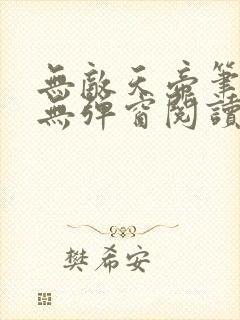 無敵天帝筆
無彈窗閱讀
樊希安